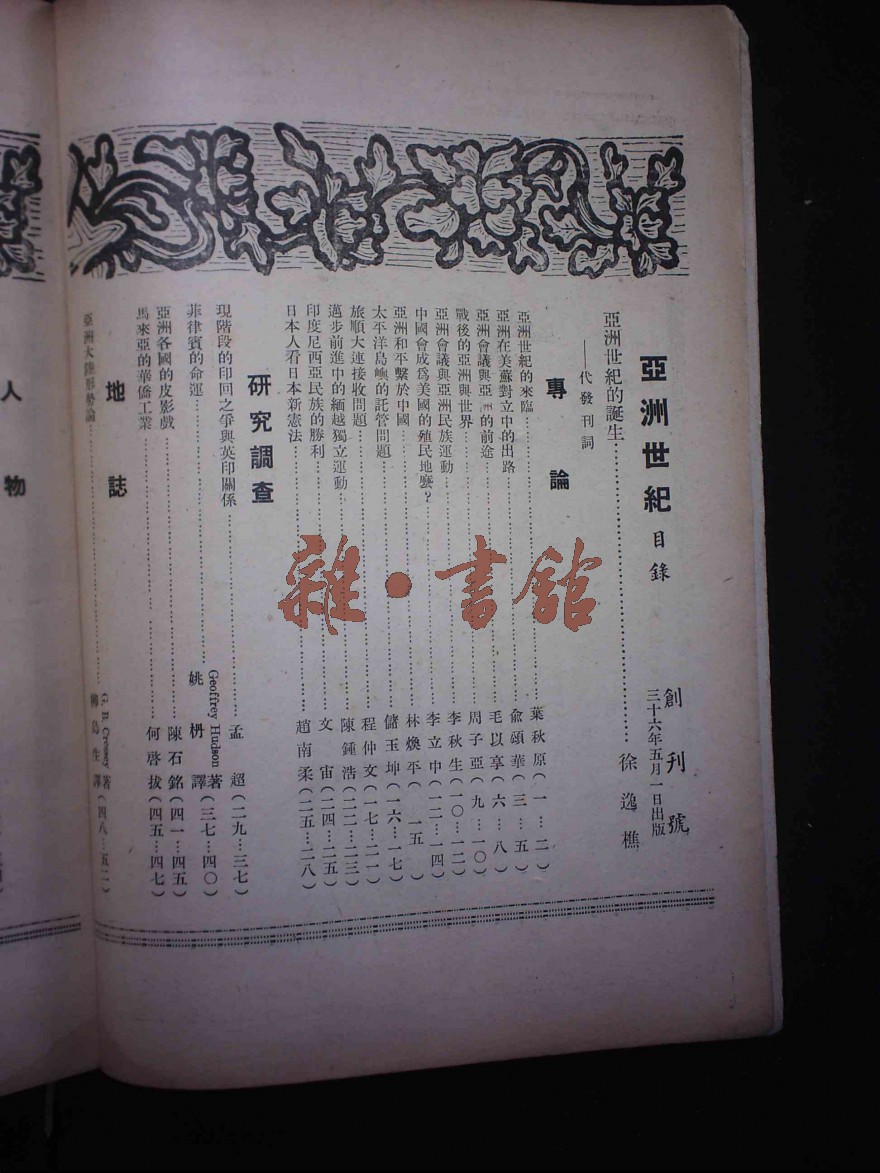 亞洲世紀 目錄
創刊號
三十六年五月一日出版
亞洲世紀的誕生………………徐逸樵
——代發刊詞
專論
亞洲世紀的來臨………………葉秋原(一…二)
亞洲在美蘇對立中的出路………………俞頌華(三…五)
亞洲會議與亞洲的前途………………毛以享(六…八)
戰後的亞洲與世界………………周子亞(九…一〇)
亞洲會議與亞洲民族運動………………李秋生(一〇…一二)
中國會成為美國的殖民地麼?………………李立中(一二…一四)
亞洲和平繫於中國………………林煥平(一五)
太平洋島嶼的託管問題………………儲玉坤(一六…一七)
旅順大連接收問題………………程仲文(一七…二一)
邁步前進中的緬越獨立運動………………陳鍾浩(二二…二三)
印度尼西亞民族的勝利………………文宙(二四…二五)
日本人看日本新憲法………………趙南柔(二五…二八)
研究調查
現階段的印回之爭與英印關係………………孟超(二九…三七)
菲律賓的命運………………Geoffrey Hudson著 姚枬譯(三七…四〇)
亞洲各國的皮影戲………………陳石銘(四一…四五)
馬來亞的華僑工業………………何啓拔(四五…四七)
地誌
亞洲大陸形勢論………………G. B. Cressey著 島生譯(四八…五二)
人物
雜·書館